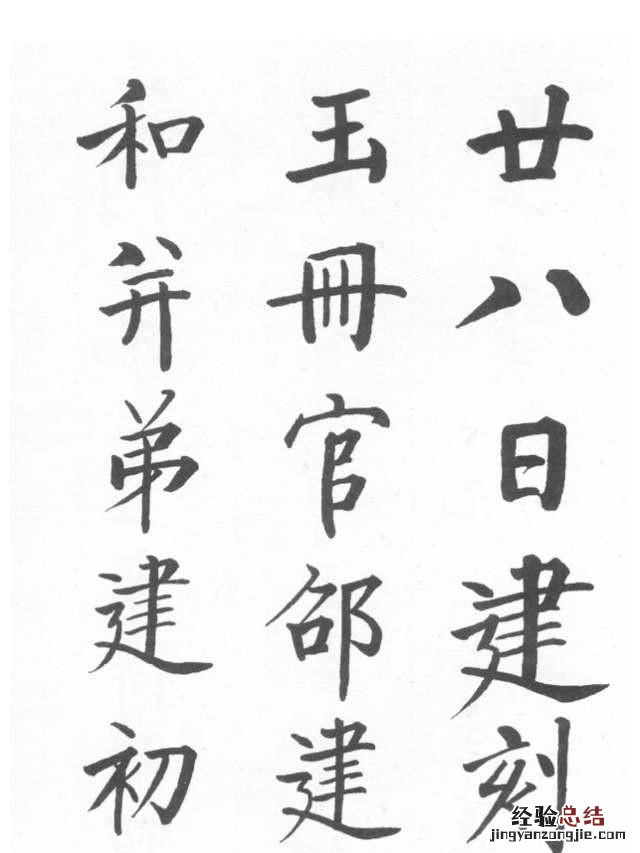 廿八日建刻
玉冊官邵建
和并弟建初
经验总结
jingyanzongjie.com